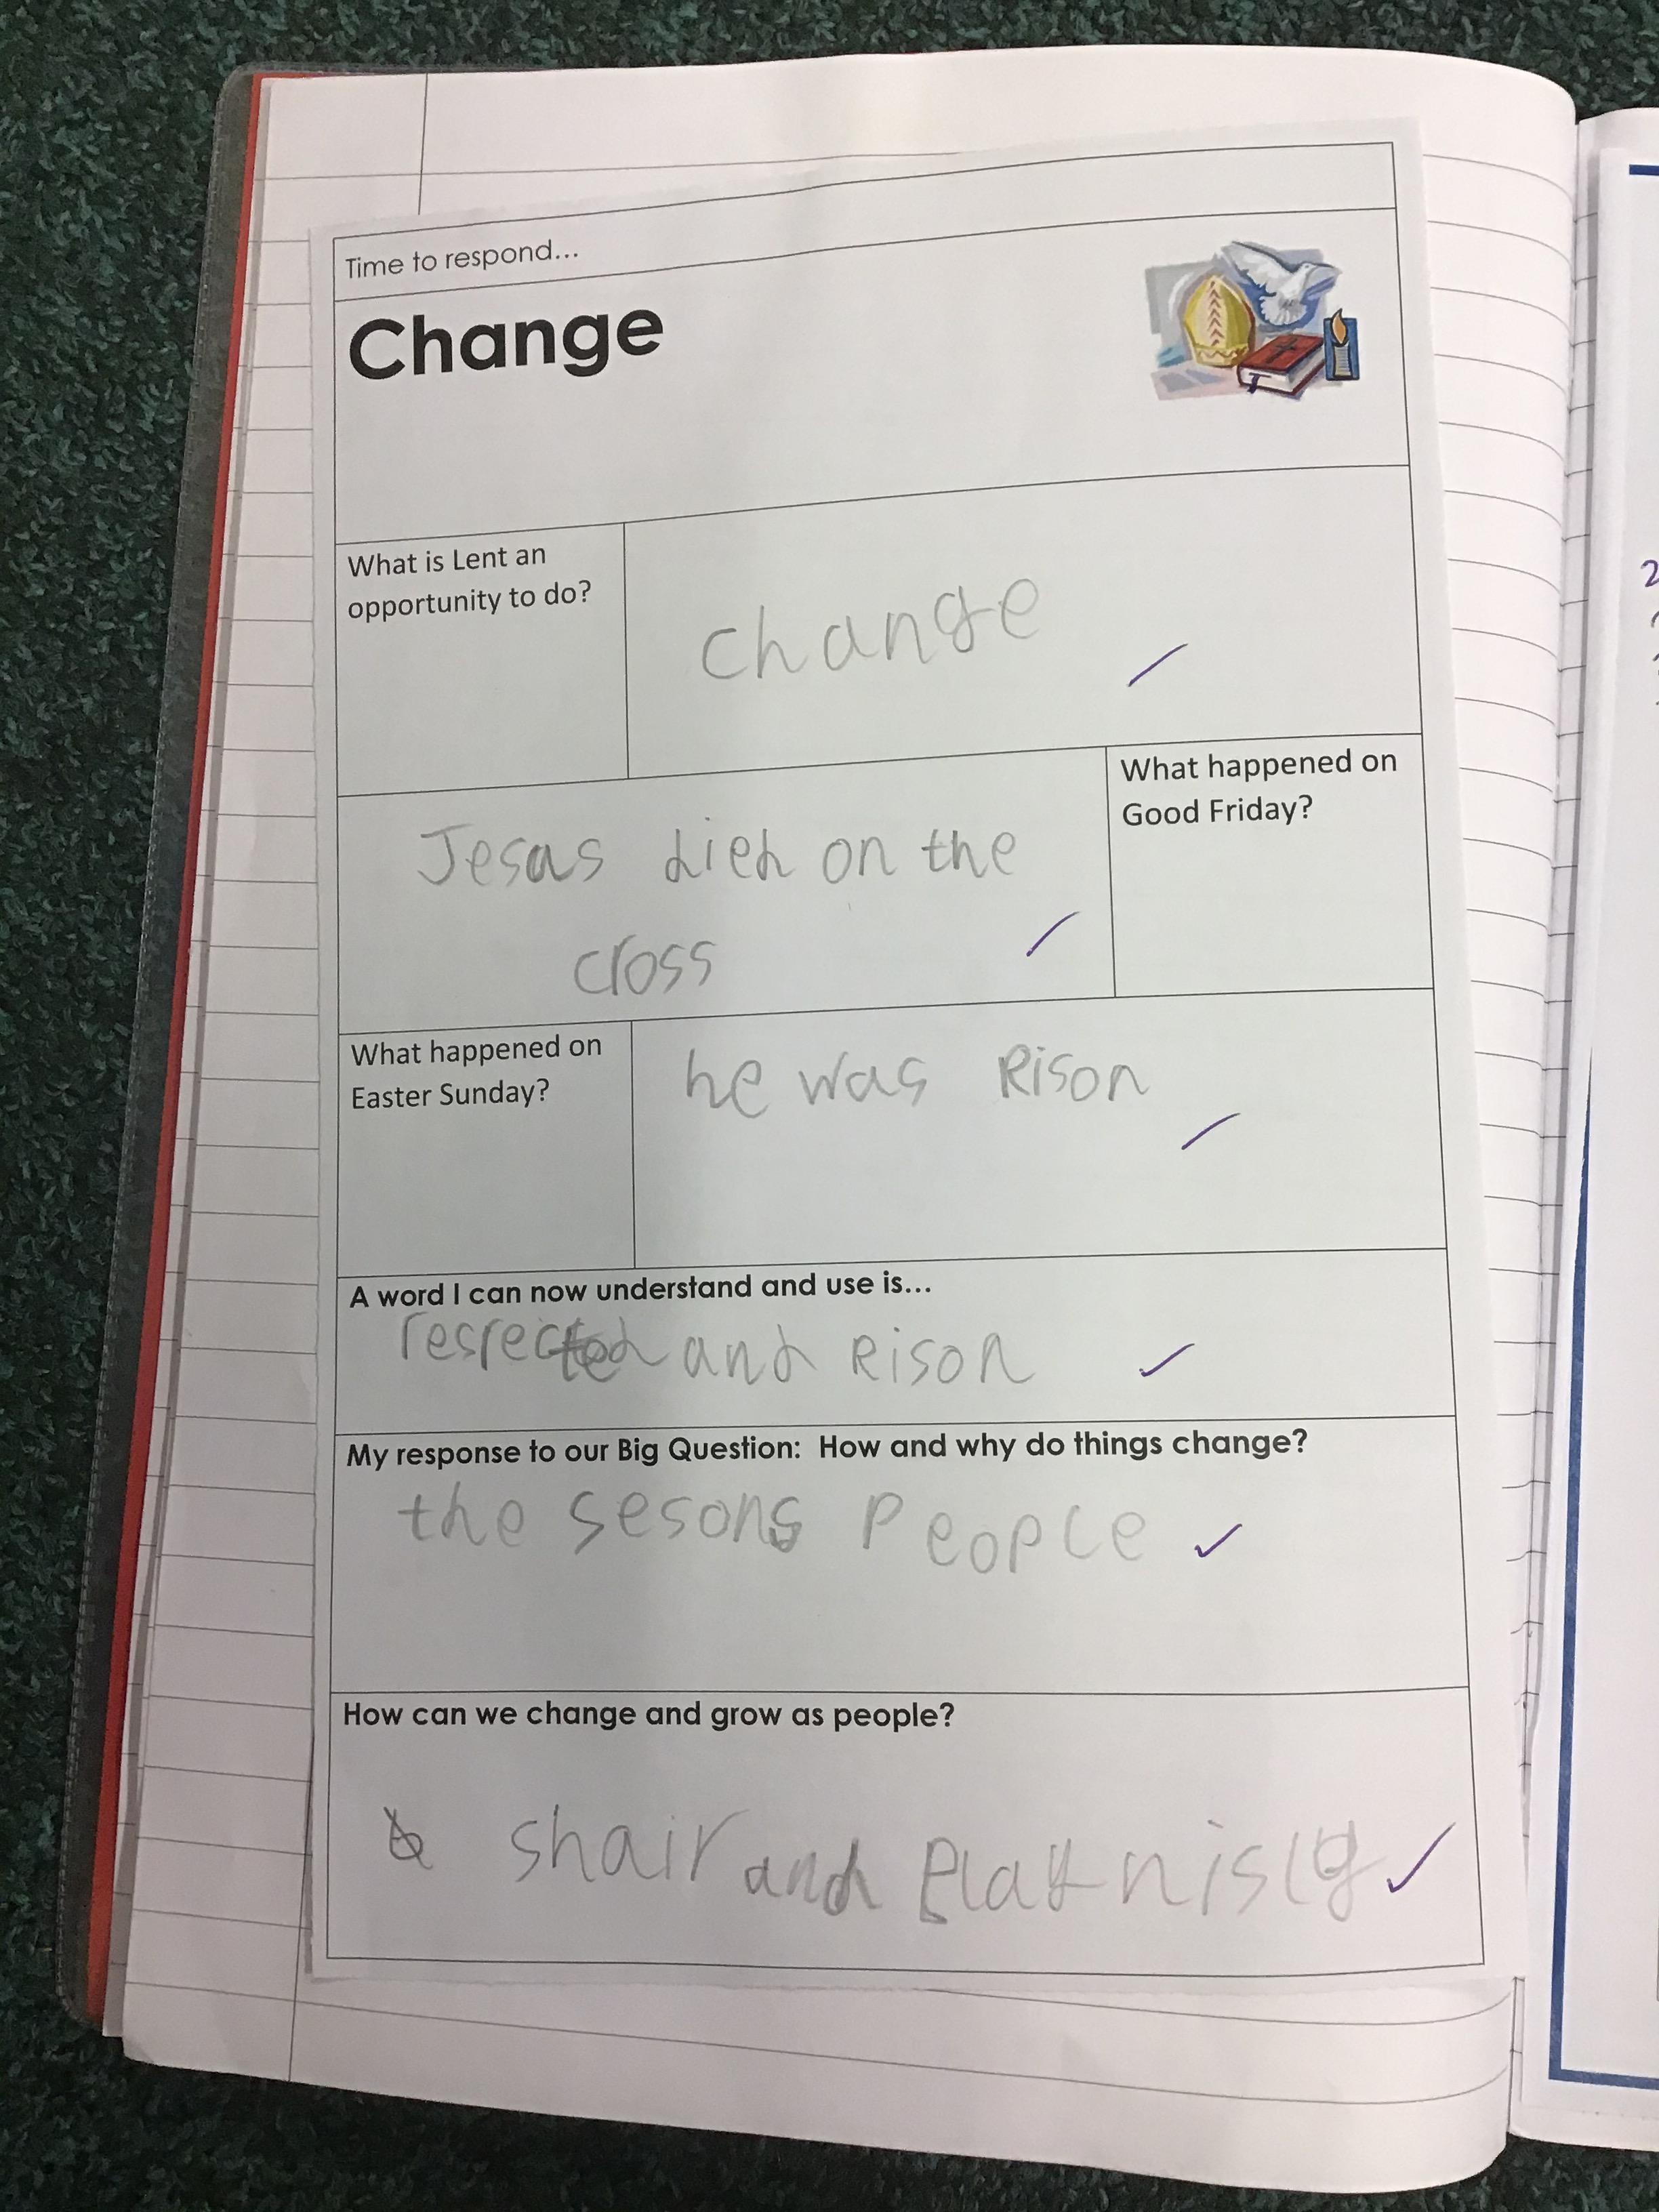 Time to respond...
Change
What is Lent an
opportunity to do?
change
Jesus died on the
cross
What happened on
Good Friday?
What happened on
Easter Sunday?
he was Rison
A word I can now understand and use is...
resrected and Rison
My response to our Big Question: How and why do things change?
the sesons PeoPle
How can we change and grow as people?
shair and Play nisly
2